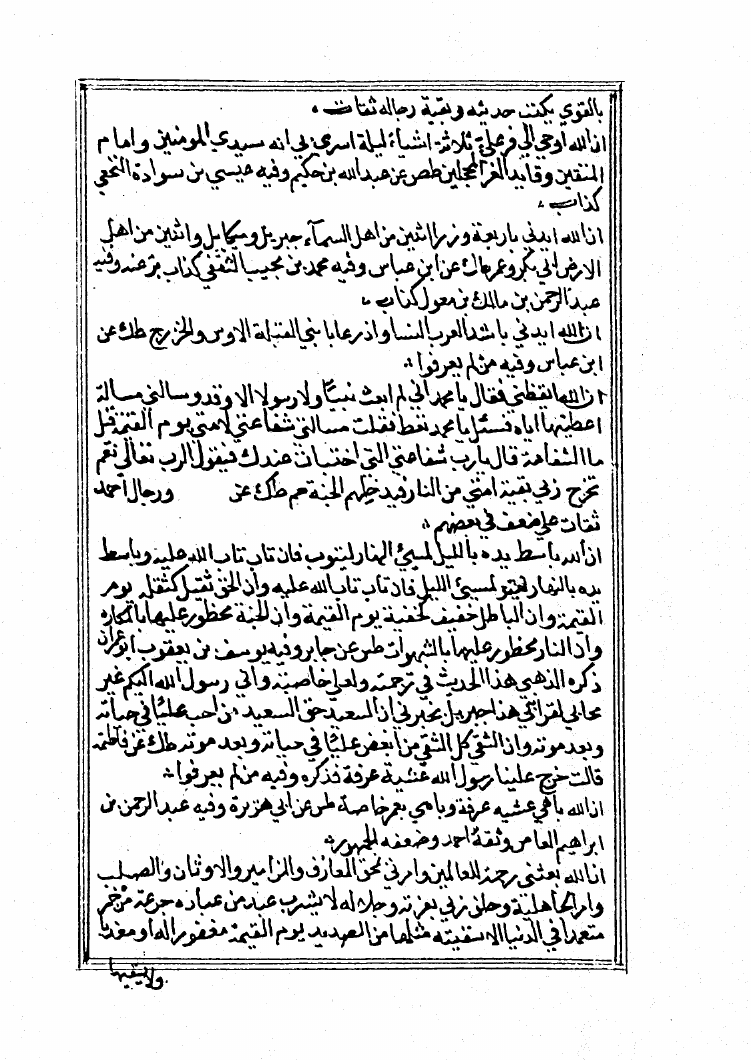 بالقوي يكتب حديثه وبقية رجاله ثقات
ان الله اوحي الي في علي ثلاثة اشياء ليلة اسري بي انه سيدي المومنين وامام
المتقين وقايد الغر المحجلين طص عن عبد الله بن حكيم وفيه عيسي بن سوادة النخعي
كذاب
ان الله ايدني باربعة وزرا اثنين من اهل السمآء جبريل وميكايل واثنين من اهل
الارض ابي بكر وعمر طك عن ابن عباس وفيه محمد بن مجيب الثقفي كذاب بز عنه وفيه
عبد الرحمن بن مالك بن مغول كذاب
ان الله ايدني باشد العرب السنا واذرعا بابني القيلة الاوس والخزرج طك عن
ابن عباس وفيه من لم يعرفوا
ان الله ايقظني فقال يا محمد اني لم ابعث نبيا ولا رسولا الا وقد وسالني مسالة
اعطيتها اياه فسئل يا محمد تعط فقلت مسالتي شفاعتي لامتي يوم القيمة قيل
ما الشفاعة قال يارب شفاعتي التي اختبات عندك فيقول الرب تعالي نعم
تخرج ربي بقية امتي من النار فيدخلهم الجنة حم طك عن ورجال احمد
ثقات علي ضعف في بعضهم
ان الله باسط يده بالليل لمسئ النهار ليتوب فان تاب تاب الله عليه وباسط
يده بالنهار لمسئ الليل فان تاب تاب الله عليه وان الحق ثقيل كثقله يوم
القيمة وان الباطل خفيف كخفية يوم القيمة وان الجنة محظور عليها بالمكاره
وان النار محظور عليها بالشهوات طس عن جابر وفيه يوسف بن يعقوب ابو عمران
ذكره الذهبي هذا الحديث في ترجمته ولعلي خاصية واني رسول الله اليكم غير
محابي لقرابتي هذا جبريل يخبرني ان السعيد حق السعيد من احب عليا في حياته
وبعد موته وان الشقي كل الشقي من ابغض عليا في حياته وبعد موته طك عن فاطمة
قالت خرج علينا رسول الله عشية عرفة فذكره وفيه من لم يعرفوا
ان الله باهي عشيه عرفة وباهي بعمر خاصة طس عن ابي هريرة وفيه عبد الرحمن بن
ابراهيم العاص وثقة احمد وضعفه الجمهور
ان الله بعثني رحمة للعالمين وامرني لمحق المعازف والمزامير والاوثان والصلب
وامر الجاهلية وحلف ربي بعزته وجلاله لا يشرب عبد من عباده جرعة من خمر
متعمدا في الدنيا الا سقيته مثلها من الصديد يوم القيمة مغفور اله او معذبا
ولا يسقيها